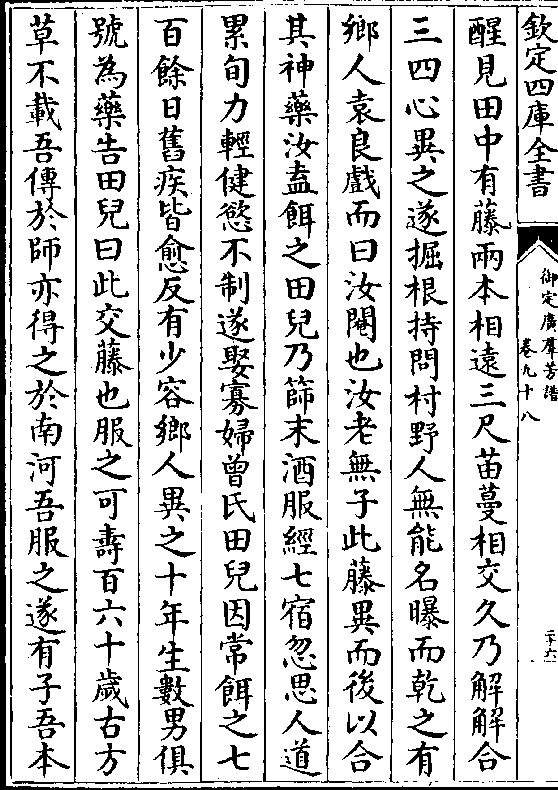 欽定四庫全書
御定廣羣芳譜
卷九十八
二十六
醒見田中有藤兩本相遠三尺苗蔓相交久乃解解合
三四心異之遂掘根持問村野人無能名曝而乾之有
鄉人袁良戲而曰汝閹也汝老無子此藤異而後以合
其神藥汝盍餌之田兒乃篩末酒服經七宿忽思人道
累旬力輕健慾不制遂娶寡婦曾氏田兒因常餌之七
百餘日舊疾皆愈反有少容鄉人異之十年生數男俱
號為藥告田兒曰此交藤也服之可壽百六十歲古方
草不載吾傳於師亦得之於南河吾服之遂有子吾本